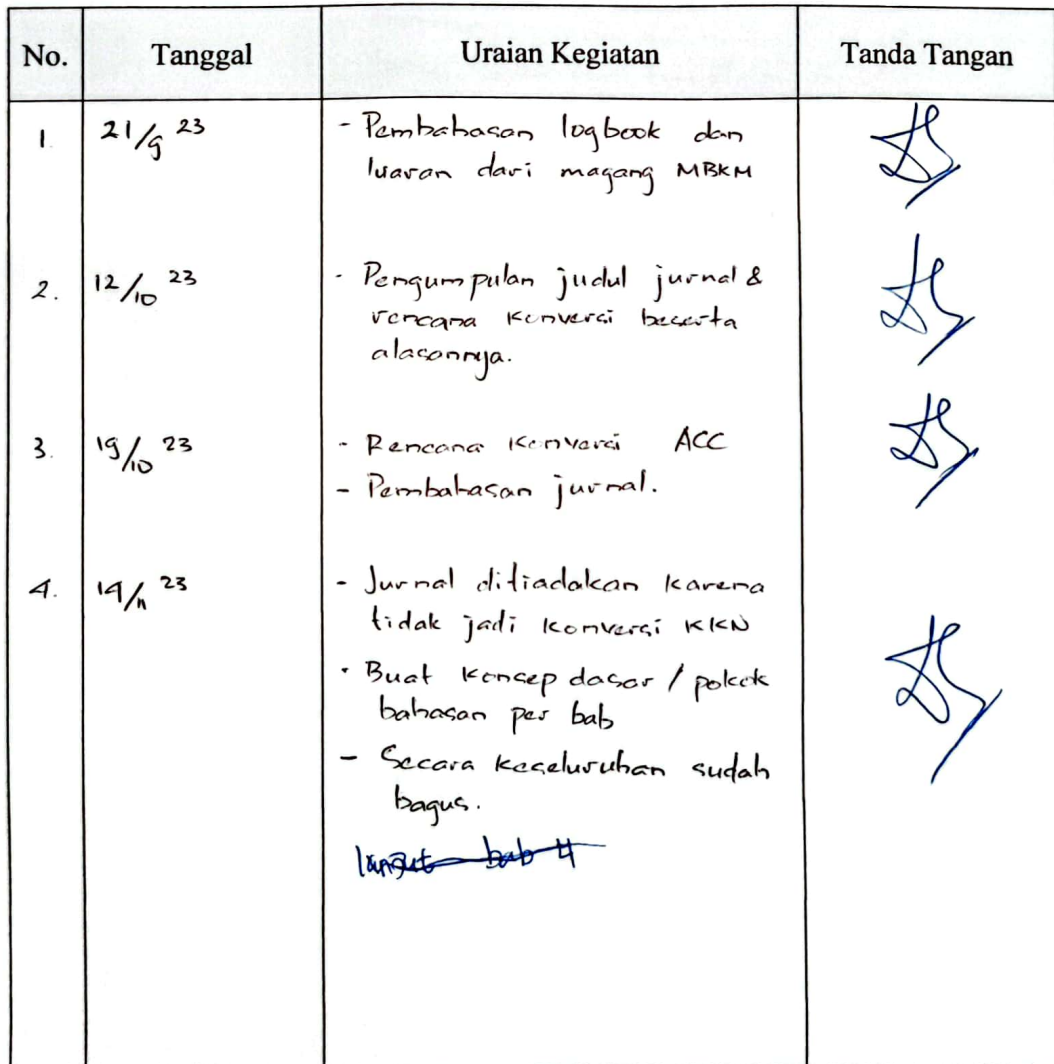 No. Tanggal Uraian Kegiatan Tanda Tangan
1. 21/9 23 - Pembahasan logbook dan
luaran dari magang MBKM
2. 12/10 23 - Pengumpulan judul jurnal &
rencana Konversi beserta
alasannya.
3. 19/10 23 - Rencana Konversi ACC
- Pembahasan jurnal.
4. 14/11 23 - Jurnal ditiadakan karena
tidak jadi Konversi KKN
- Buat Konsep dasar / pokok
bahasan per bab
- Secara keseluruhan sudah
bagus.
lanjut bab 4